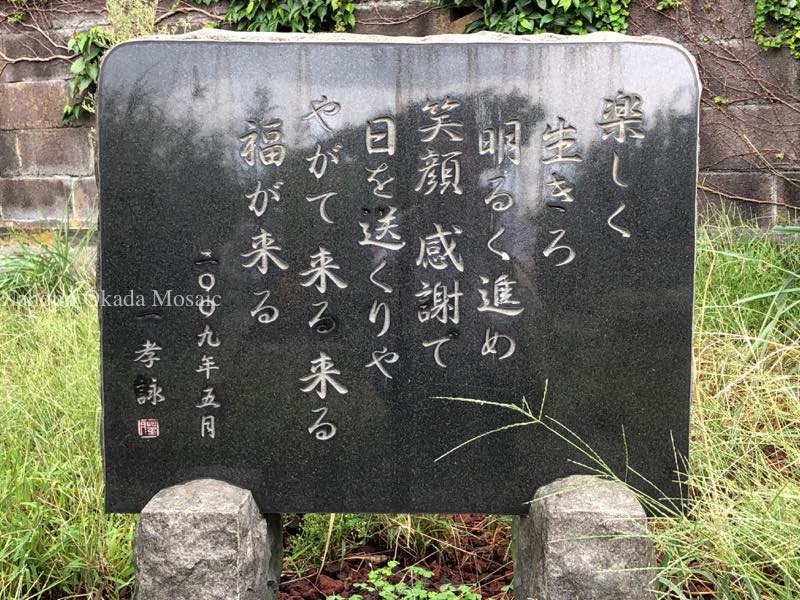 楽しく
生きろ
明るく進め
笑顔 感謝で
日を送くりや
やがて来る来る
福が来る
二〇〇九年五月
一孝詠
Okada Mosaic